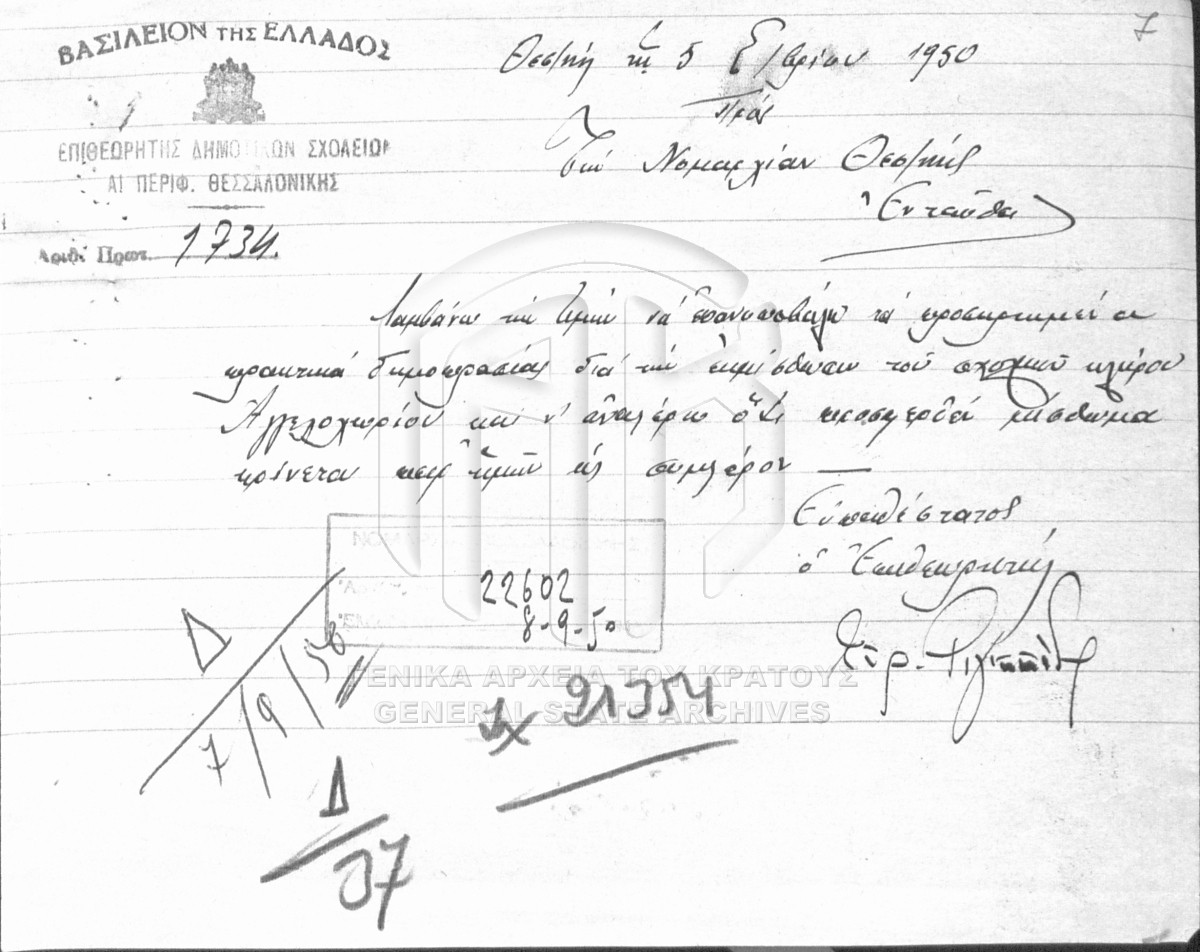 7
ΒΑΣΙΛΕΙΟΝ ΤΗΣ ΕΛΛΑΔΟΣ
ΕΠΙΘΕΩΡΗΤΗΣ ΔΗΜΟΤΙΚΩΝ ΣΧΟΛΕΙΩΝ
ΑΙ ΠΕΡΙΦ. ΘΕΣΣΑΛΟΝΙΚΗΣ
Αριθ. Πρωτ. 1734.
Θεσ/νίκη τῇ 5 Σ/βρίου 1950
Πρός
Τὴν Νομαρχίαν Θεσ/νίκης
Ἐνταῦθα
Λαμβάνω τὴν τιμὴν νὰ ἐπανυποβάλω τὰ προσηρτημένα
πρακτικὰ δημοπρασίας διὰ τὴν ἐκμίσθωσιν τοῦ σχολικοῦ κλήρου
Ἀγγελοχωρίου καὶ ν' ἀναφέρω ὅτι προσφερθὲν μίσθωμα
κρίνεται παρ' ἡμῶν ὡς συμφέρον —
Εὐπειθέστατος
ὁ Ἐπιθεωρητής
22602
8-9-50
Δ
7/9/50
91354
Δ
07
ΓΕΝΙΚΑ ΑΡΧΕΙΑ ΤΟΥ ΚΡΑΤΟΥΣ
GENERAL STATE ARCHIVES